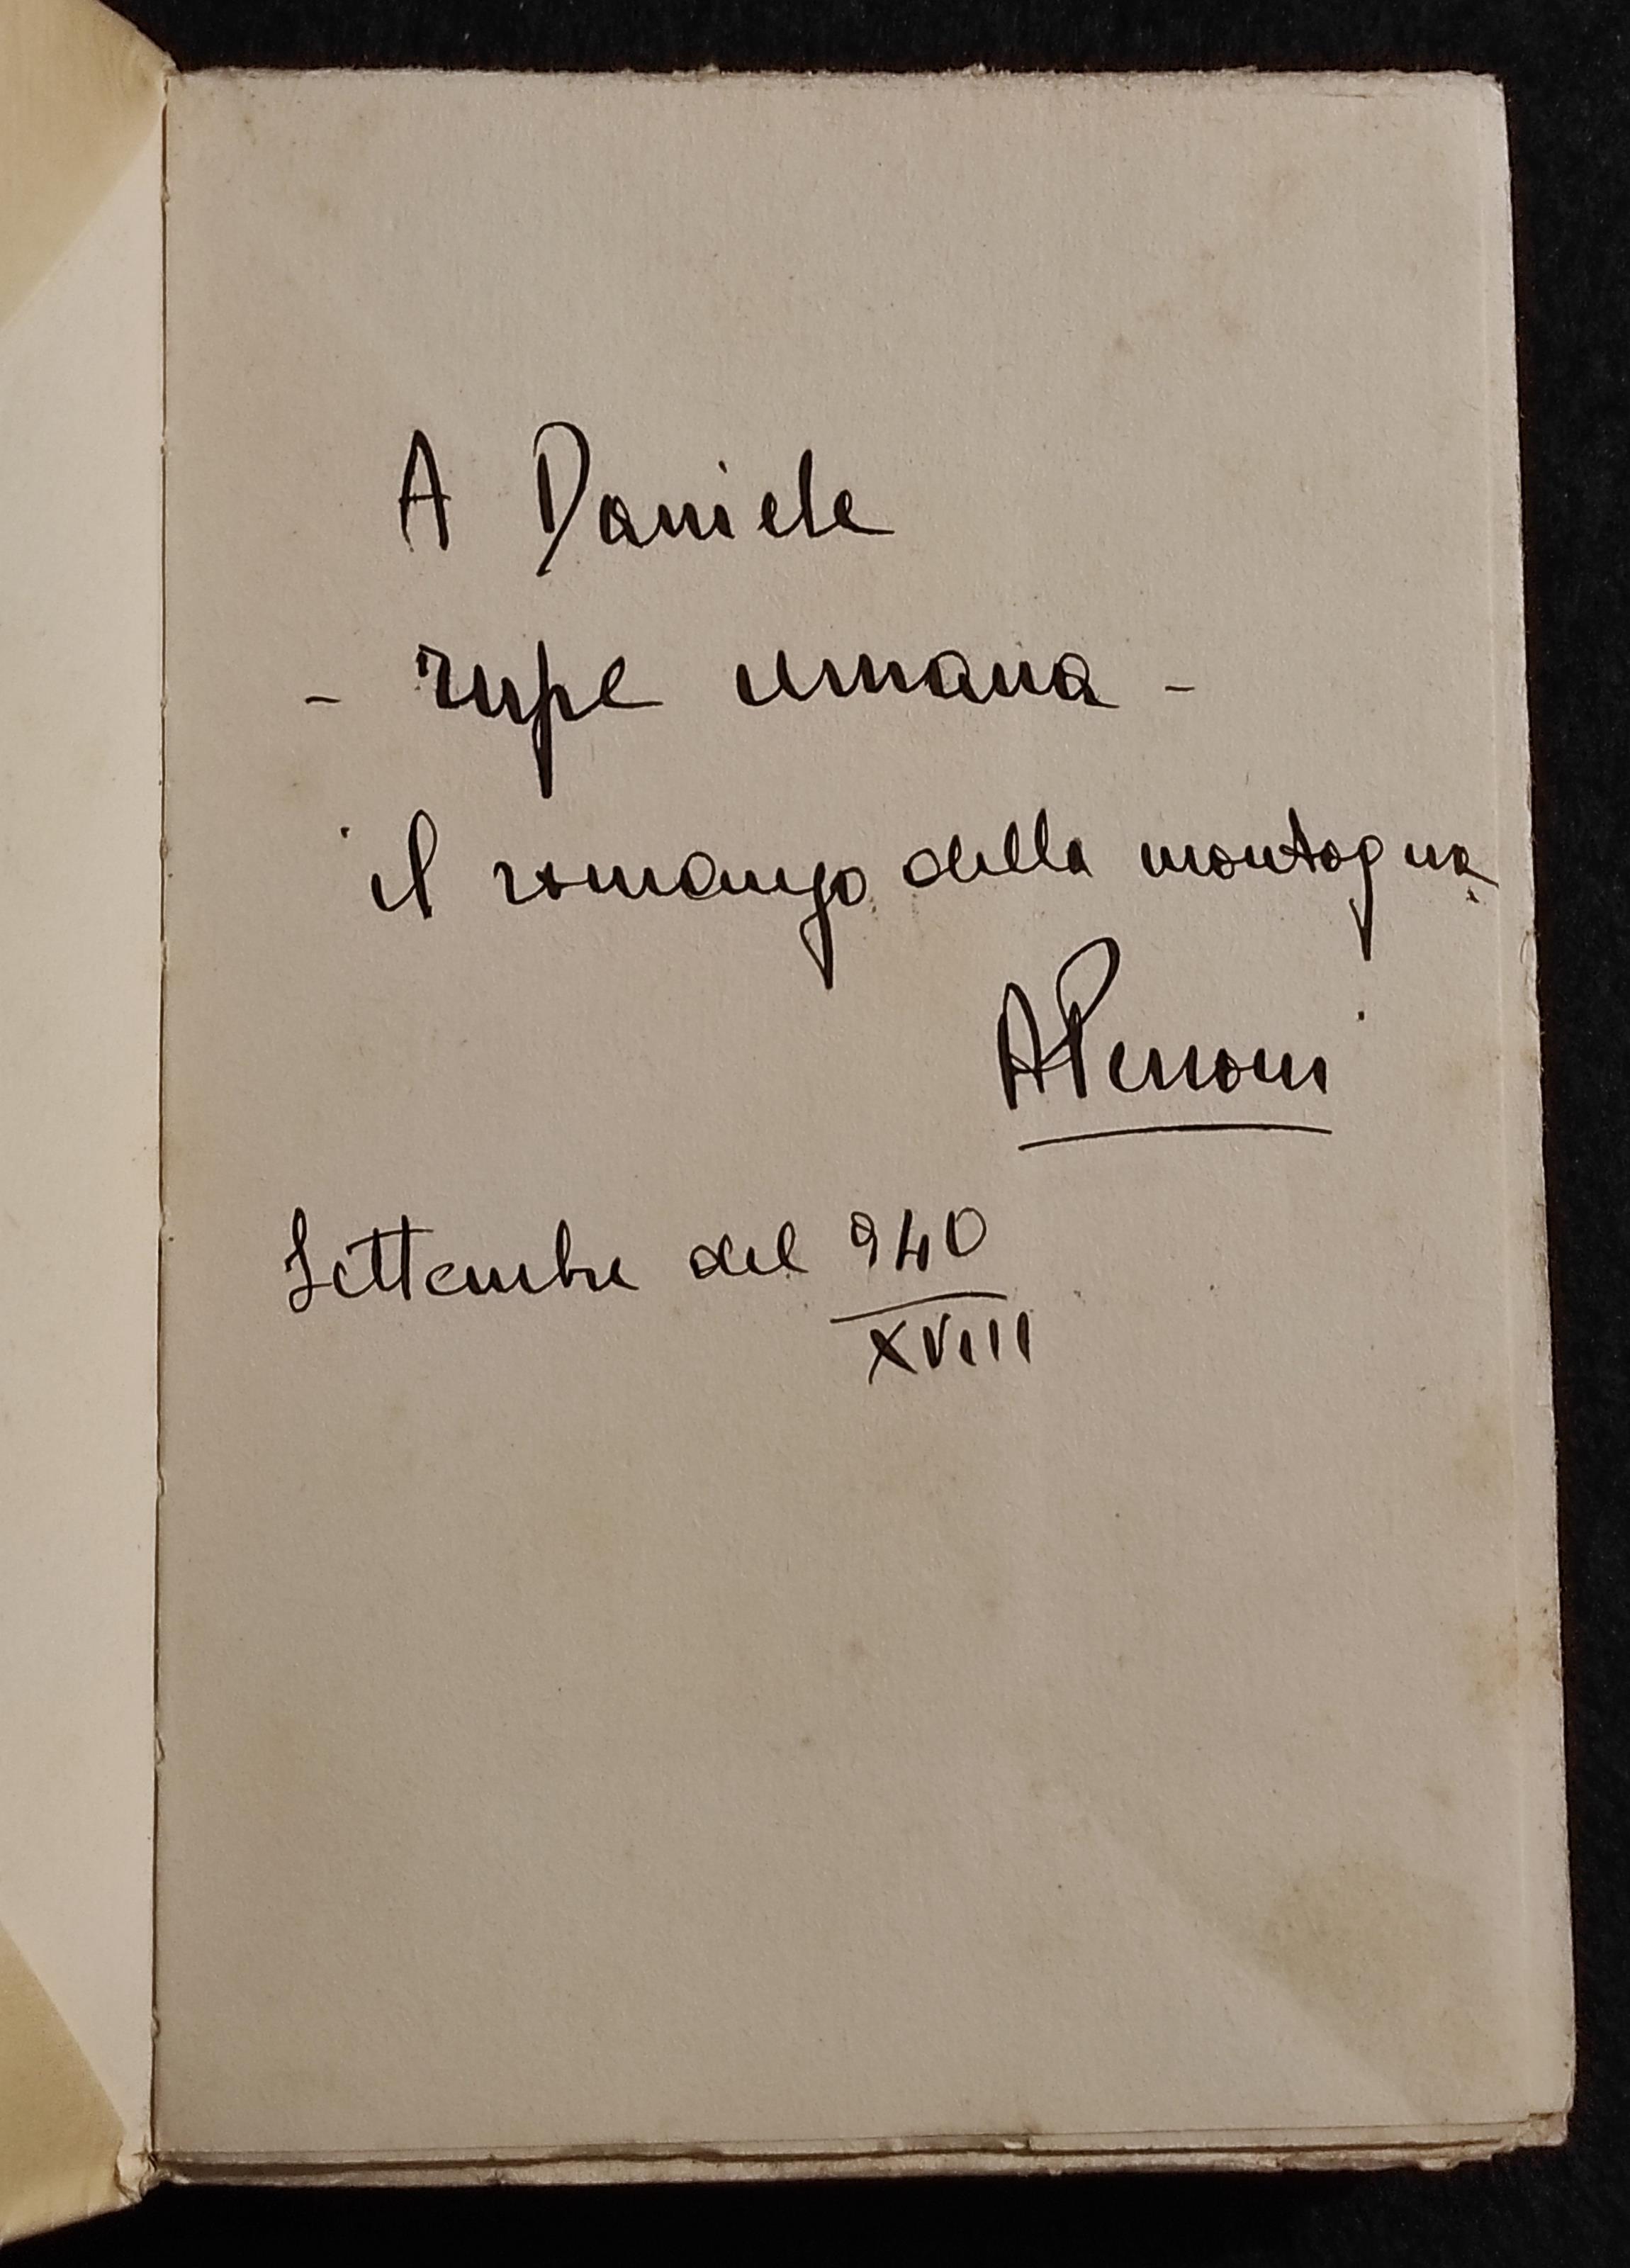 A Daniele
- rupe umana -
il romanzo della montagna
APerroni
Settembre del 940
XVIII